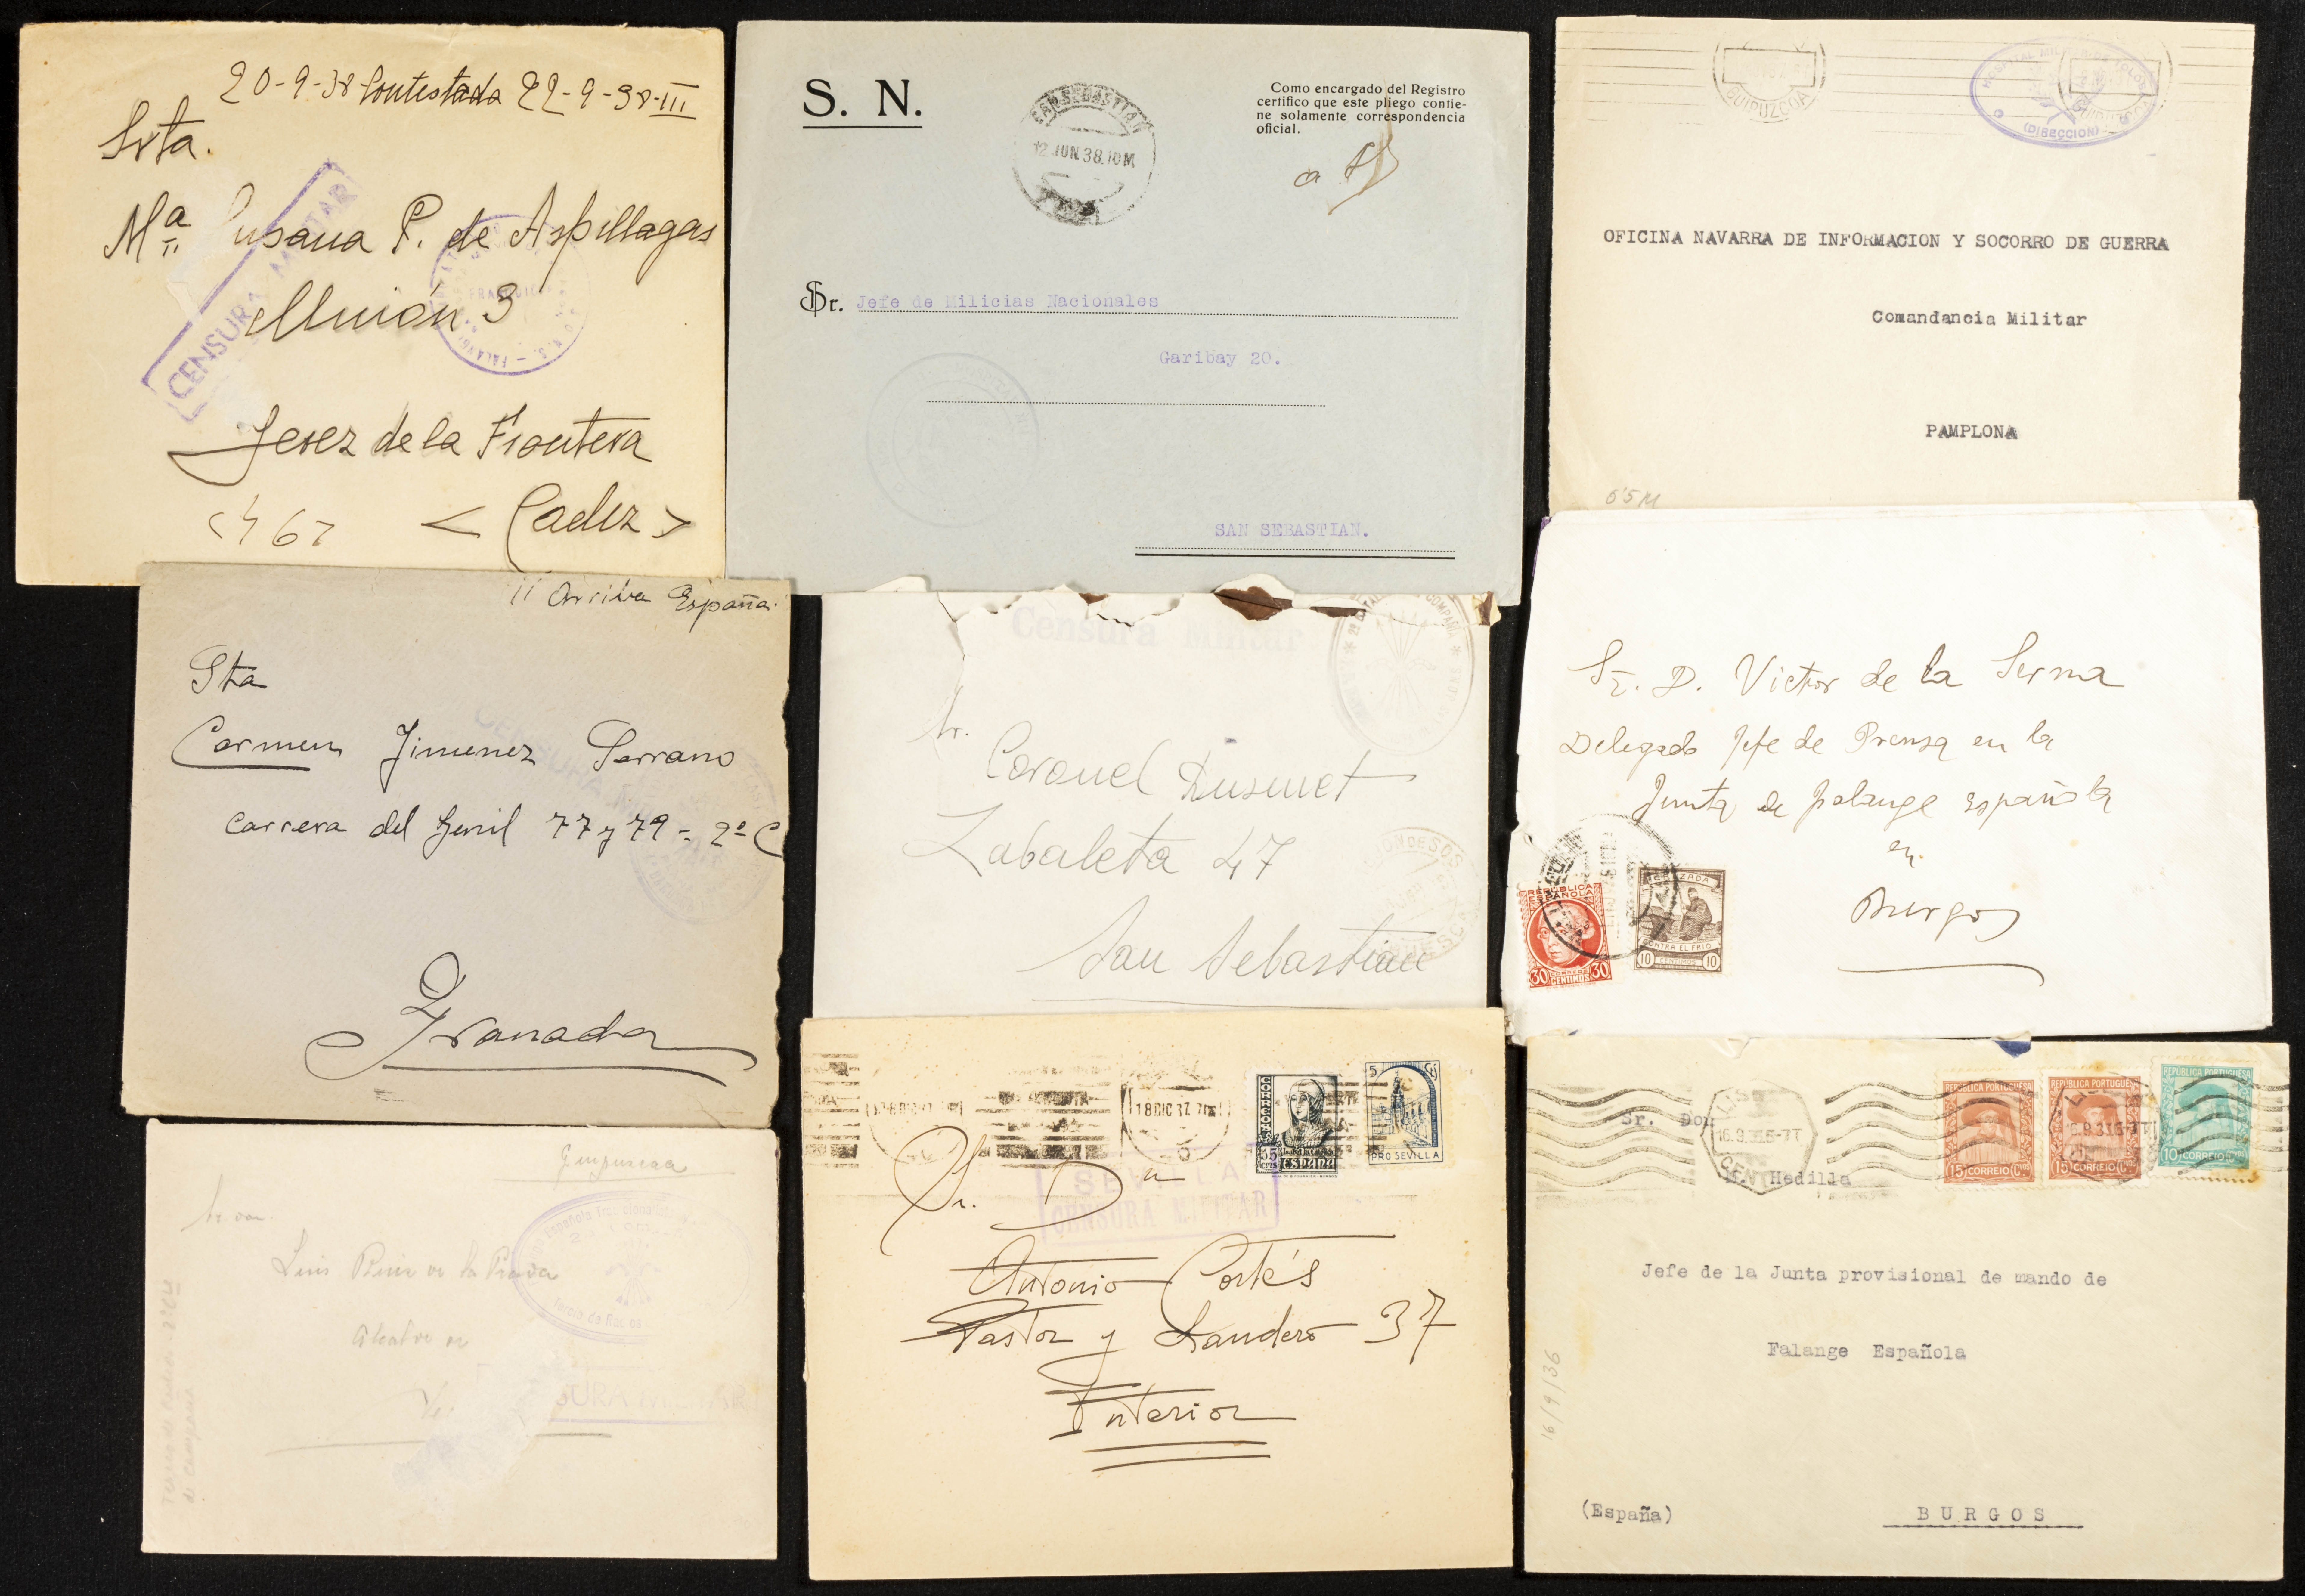 20-9-38 Contestada 22-9-38-III
Srta.
Mª Susana P. de Aspillagas
Unión 3
Jerez de la Frontera
<Cadiz>
CENSURA MILITAR
S. N.
SAN SEBASTIAN
12 JUN 38 10M
Como encargado del Registro
certifico que este pliego contie-
ne solamente correspondencia
oficial.
Sr. Jefe de Milicias Nacionales
Garibay 20.
SAN SEBASTIAN.
GUIPUZCOA
HOSPITAL
(DIRECCION)
OFICINA NAVARRA DE INFORMACION Y SOCORRO DE GUERRA
Comandancia Militar
PAMPLONA
¡¡ Arriba España
Sta
Carmen Jimenez Serrano
Carrera del Genil 77 y 79 - 2º C
Granada
CENSURA
Censura Militar
COMPAÑIA
Sr.
Coronel Dusmet
Zabaleta 47
San Sebastian
Sr. D. Victor de la Serna
Delegado Jefe de Prensa en la
Junta de falange española
en
Burgos
REPUBLICA
ESPAÑOLA
30 CORREOS 30
CENTIMOS
CRUZADA
CONTRA EL FRIO
10 CENTIMOS 10
Sr. Don
Luis Ruiz de la Prada
Alcalde de
Española Tradicionalista
Tercio de
SURA MILITAR
18 DIC 37
CORREOS
35 CTS
ESPAÑA
5 Cts
PRO SEVILLA
SEVILLA
CENSURA MILITAR
Sr. Dn
Antonio Cortés
Pastor y Landero 37
Interior
16.9.36
REPÚBLICA PORTUGUESA
15 CORREIO
REPÚBLICA PORTUGUESA
15 CORREIO
REPÚBLICA PORTUGUESA
10 CORREIO
Sr. Don
Hedilla
Jefe de la Junta provisional de mando de
Falange Española
16/9/36
(España)
BURGOS